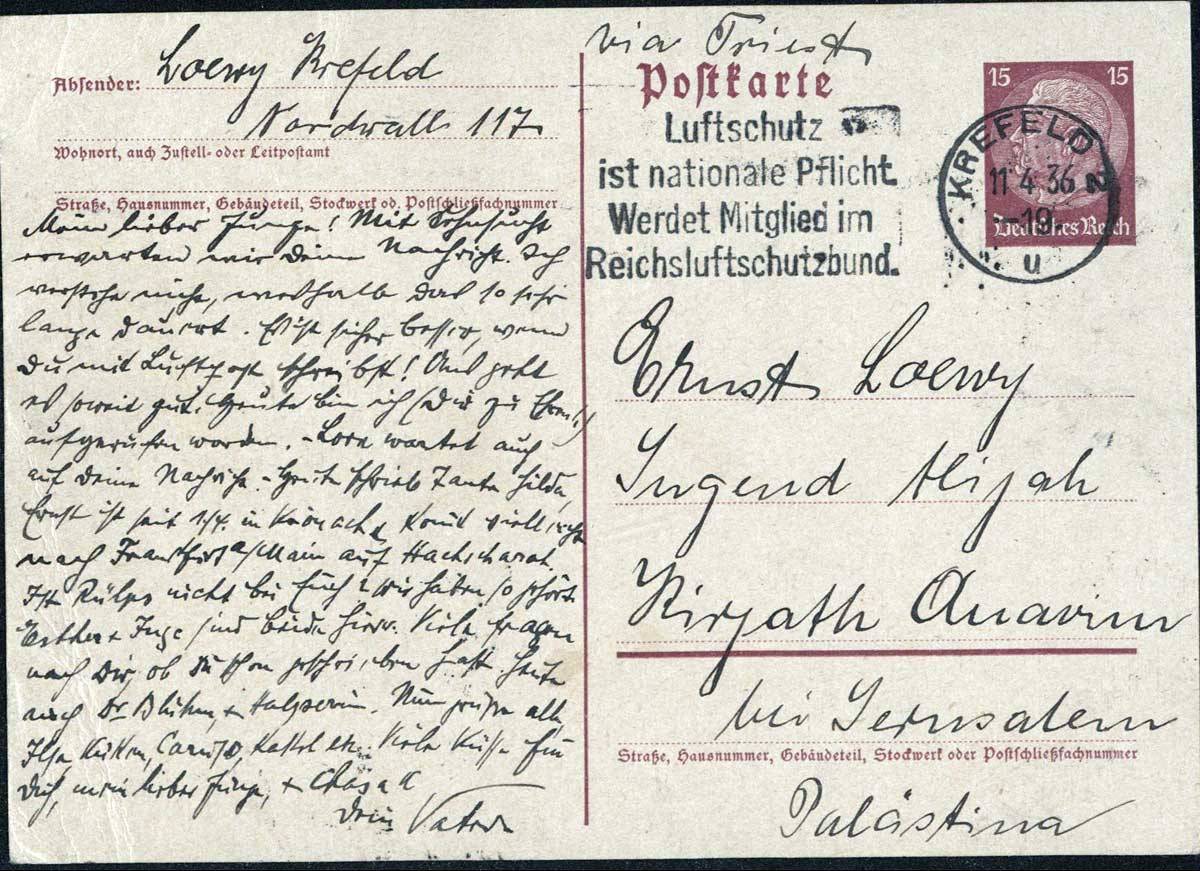 Absender: Loewy Krefeld
Nordwall 117
Wohnort, auch Zustell- oder Leitpostamt
Straße, Hausnummer, Gebäudeteil, Stockwerk od. Postschließfachnummer
Mein lieber Junge! Mit Sehnsucht
erwarten wir Deine Nachricht. Ich
verstehe nicht, weshalb das so sehr
lange dauert. Es ist sicher besser, wenn
Du mit Luftpost schreibst! Uns geht
es soweit gut. Heute bin ich (Dir zu Ehren!)
aufgerufen worden. - Lore wartet auch
auf Deine Nachricht. - Heute schrieb Tante Hilda,
Ernst ist seit 1/4. in kommt vielleicht
nach Frankfurt a/Main auf Hachscharah.
Ist Külps nicht bei Euch? wir haben so gehört.
Esther + Inge sind beide hier. Viele fragen
nach Dir, ob Du schon geschrieben hast. Heute
auch Dr. Blühm + Halperin. Nun grüßen alle,
Ilse etc. Viele Küsse für
Dich, mein lieber Junge, + Chasak
Dein Vater
via Triest
Postkarte
Luftschutz
ist nationale Pflicht.
Werdet Mitglied im
Reichsluftschutzbund.
15 15
Deutsches Reich
KREFELD 2
11.4.36
-19
u
Ernst Loewy
Jugend Alijah
Kirjath Anavim
bei Jerusalem
Straße, Hausnummer, Gebäudeteil, Stockwerk oder Postschließfachnummer
Palästina